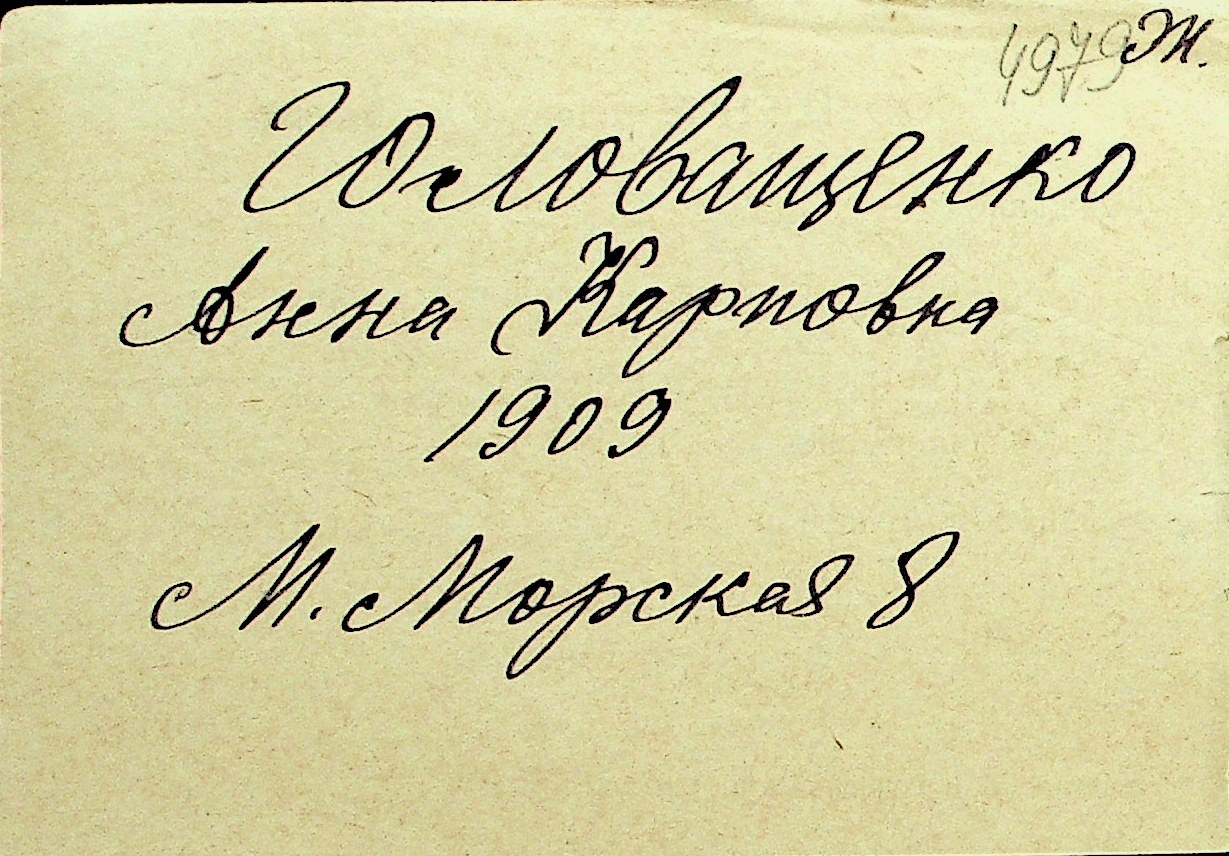 4979 Ж.
Головащенко
Анна Карповна
1909
М. Морская 8